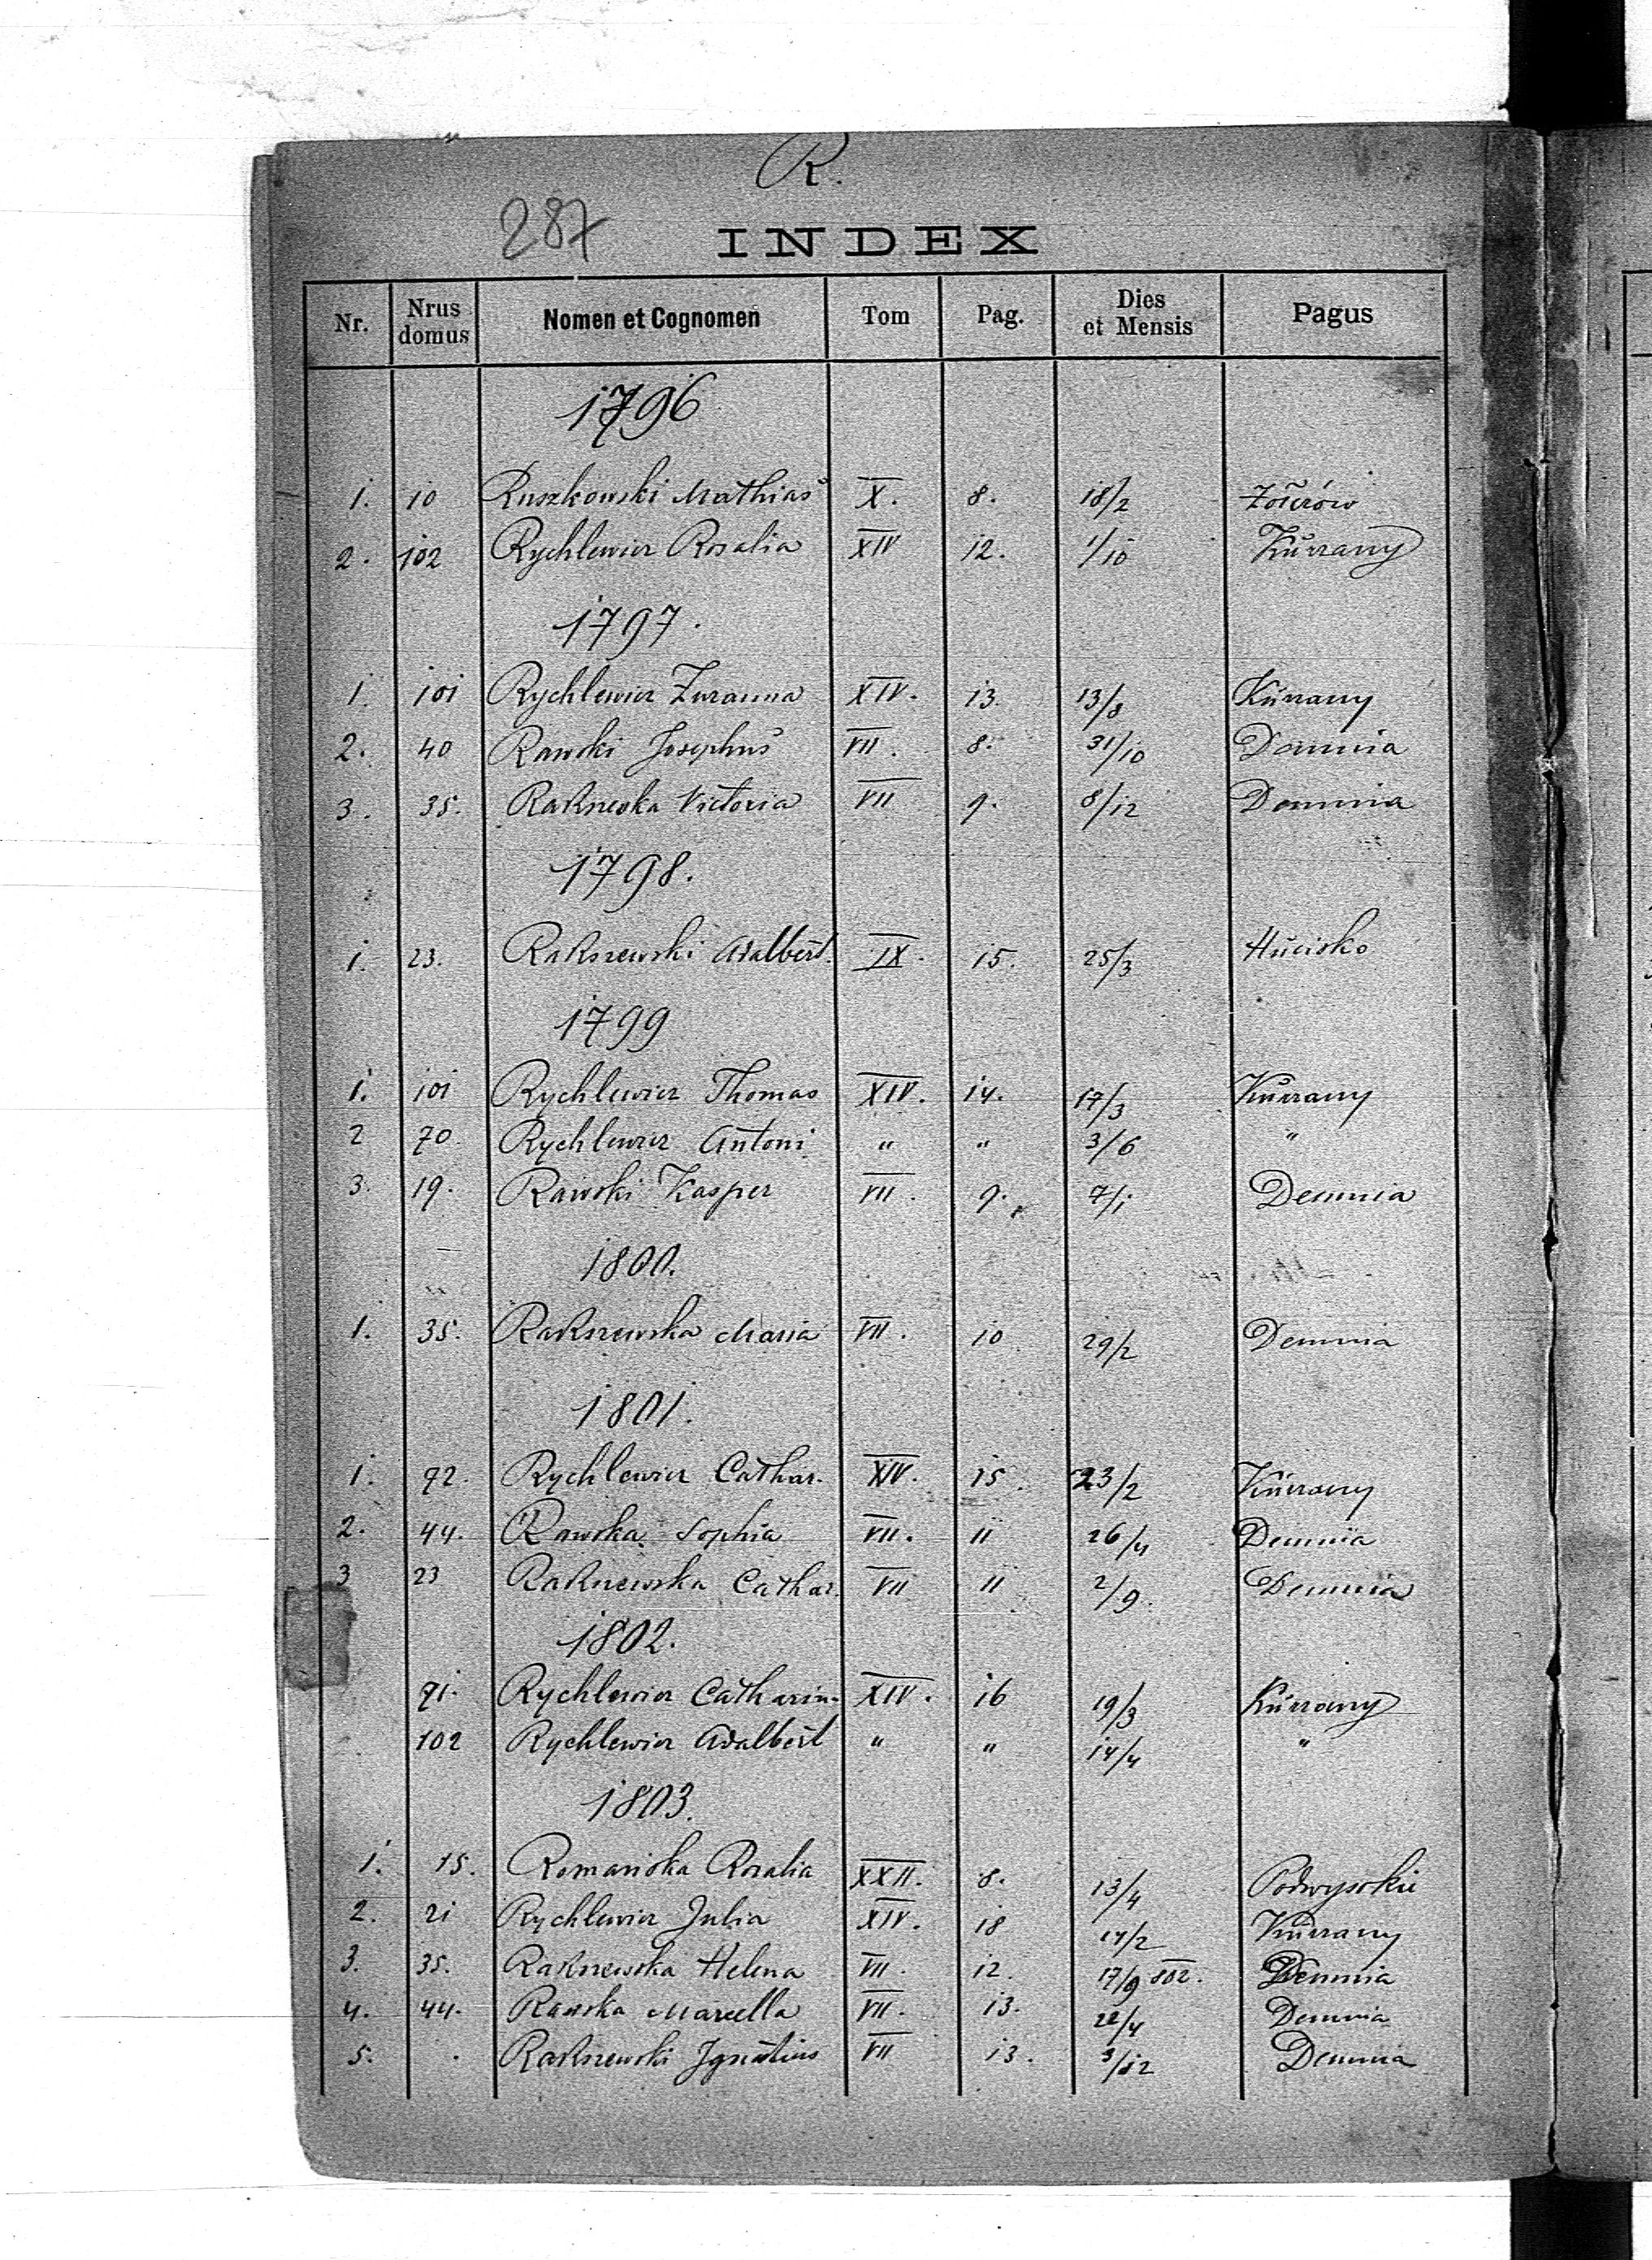 R.
287
INDEX
Nr. Nrus domus Nomen et Cognomen Tom Pag. Dies et Mensis Pagus
1796
1. 10 Ruszkowski Mathias X. 8. 18/2 Zołcrów
2. 102 Rychlewicz Rosalia XIV 12. 1/10 Kurzany
1797.
1. 101 Rychlewicz Zuzanna XIV. 13. 13/8 Kurzany
2. 40 Rawski Josephus VII. 8. 31/10 Demnia
3. 35. Rakszewska Victoria VII 9. 8/12 Demnia
1798.
1. 23. Rakszewski Adalbert. IX. 15. 25/3 Hucisko
1799
1. 101 Rychlewicz Thomas XIV. 14. 17/3 Kurzany
2 70 Rychlewicz Antoni " " 3/6 "
3. 19. Rawski Kasper VII. 9. 7/1 Demnia
1800.
1. 35. Rakszewska Maria VII. 10 29/2 Demnia
1801.
1. 92. Rychlewicz Cathar. XIV. 15. 23/2 Kurzany
2. 44. Rawska Sophia VII. 11 26/4 Demnia
3 23 Rakszewska Cathar. VII 11 2/9. Demnia
1802.
91. Rychlewicz Catharin. XIV. 16 19/3 Kurzany
102 Rychlewicz Adalbert " " 14/4 "
1803.
1. 15. Romaniska Rosalia XXII. 8. 13/4 Podwysokie
2. 21 Rychlewicz Julia XIV. 18 14/2 Kurzany
3. 35. Rakszewska Helena VII. 12. 17/9 802. Demnia
4. 44. Rawska Marcella VII. 13. 22/4 Demnia
5. . Rakszewski Ignatius VII 13. 3/12 Demnia